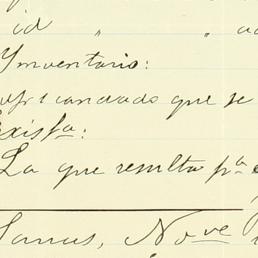 id " " ad
Ymventario:
candado que se
Exista:
La que resulta pa
Nove